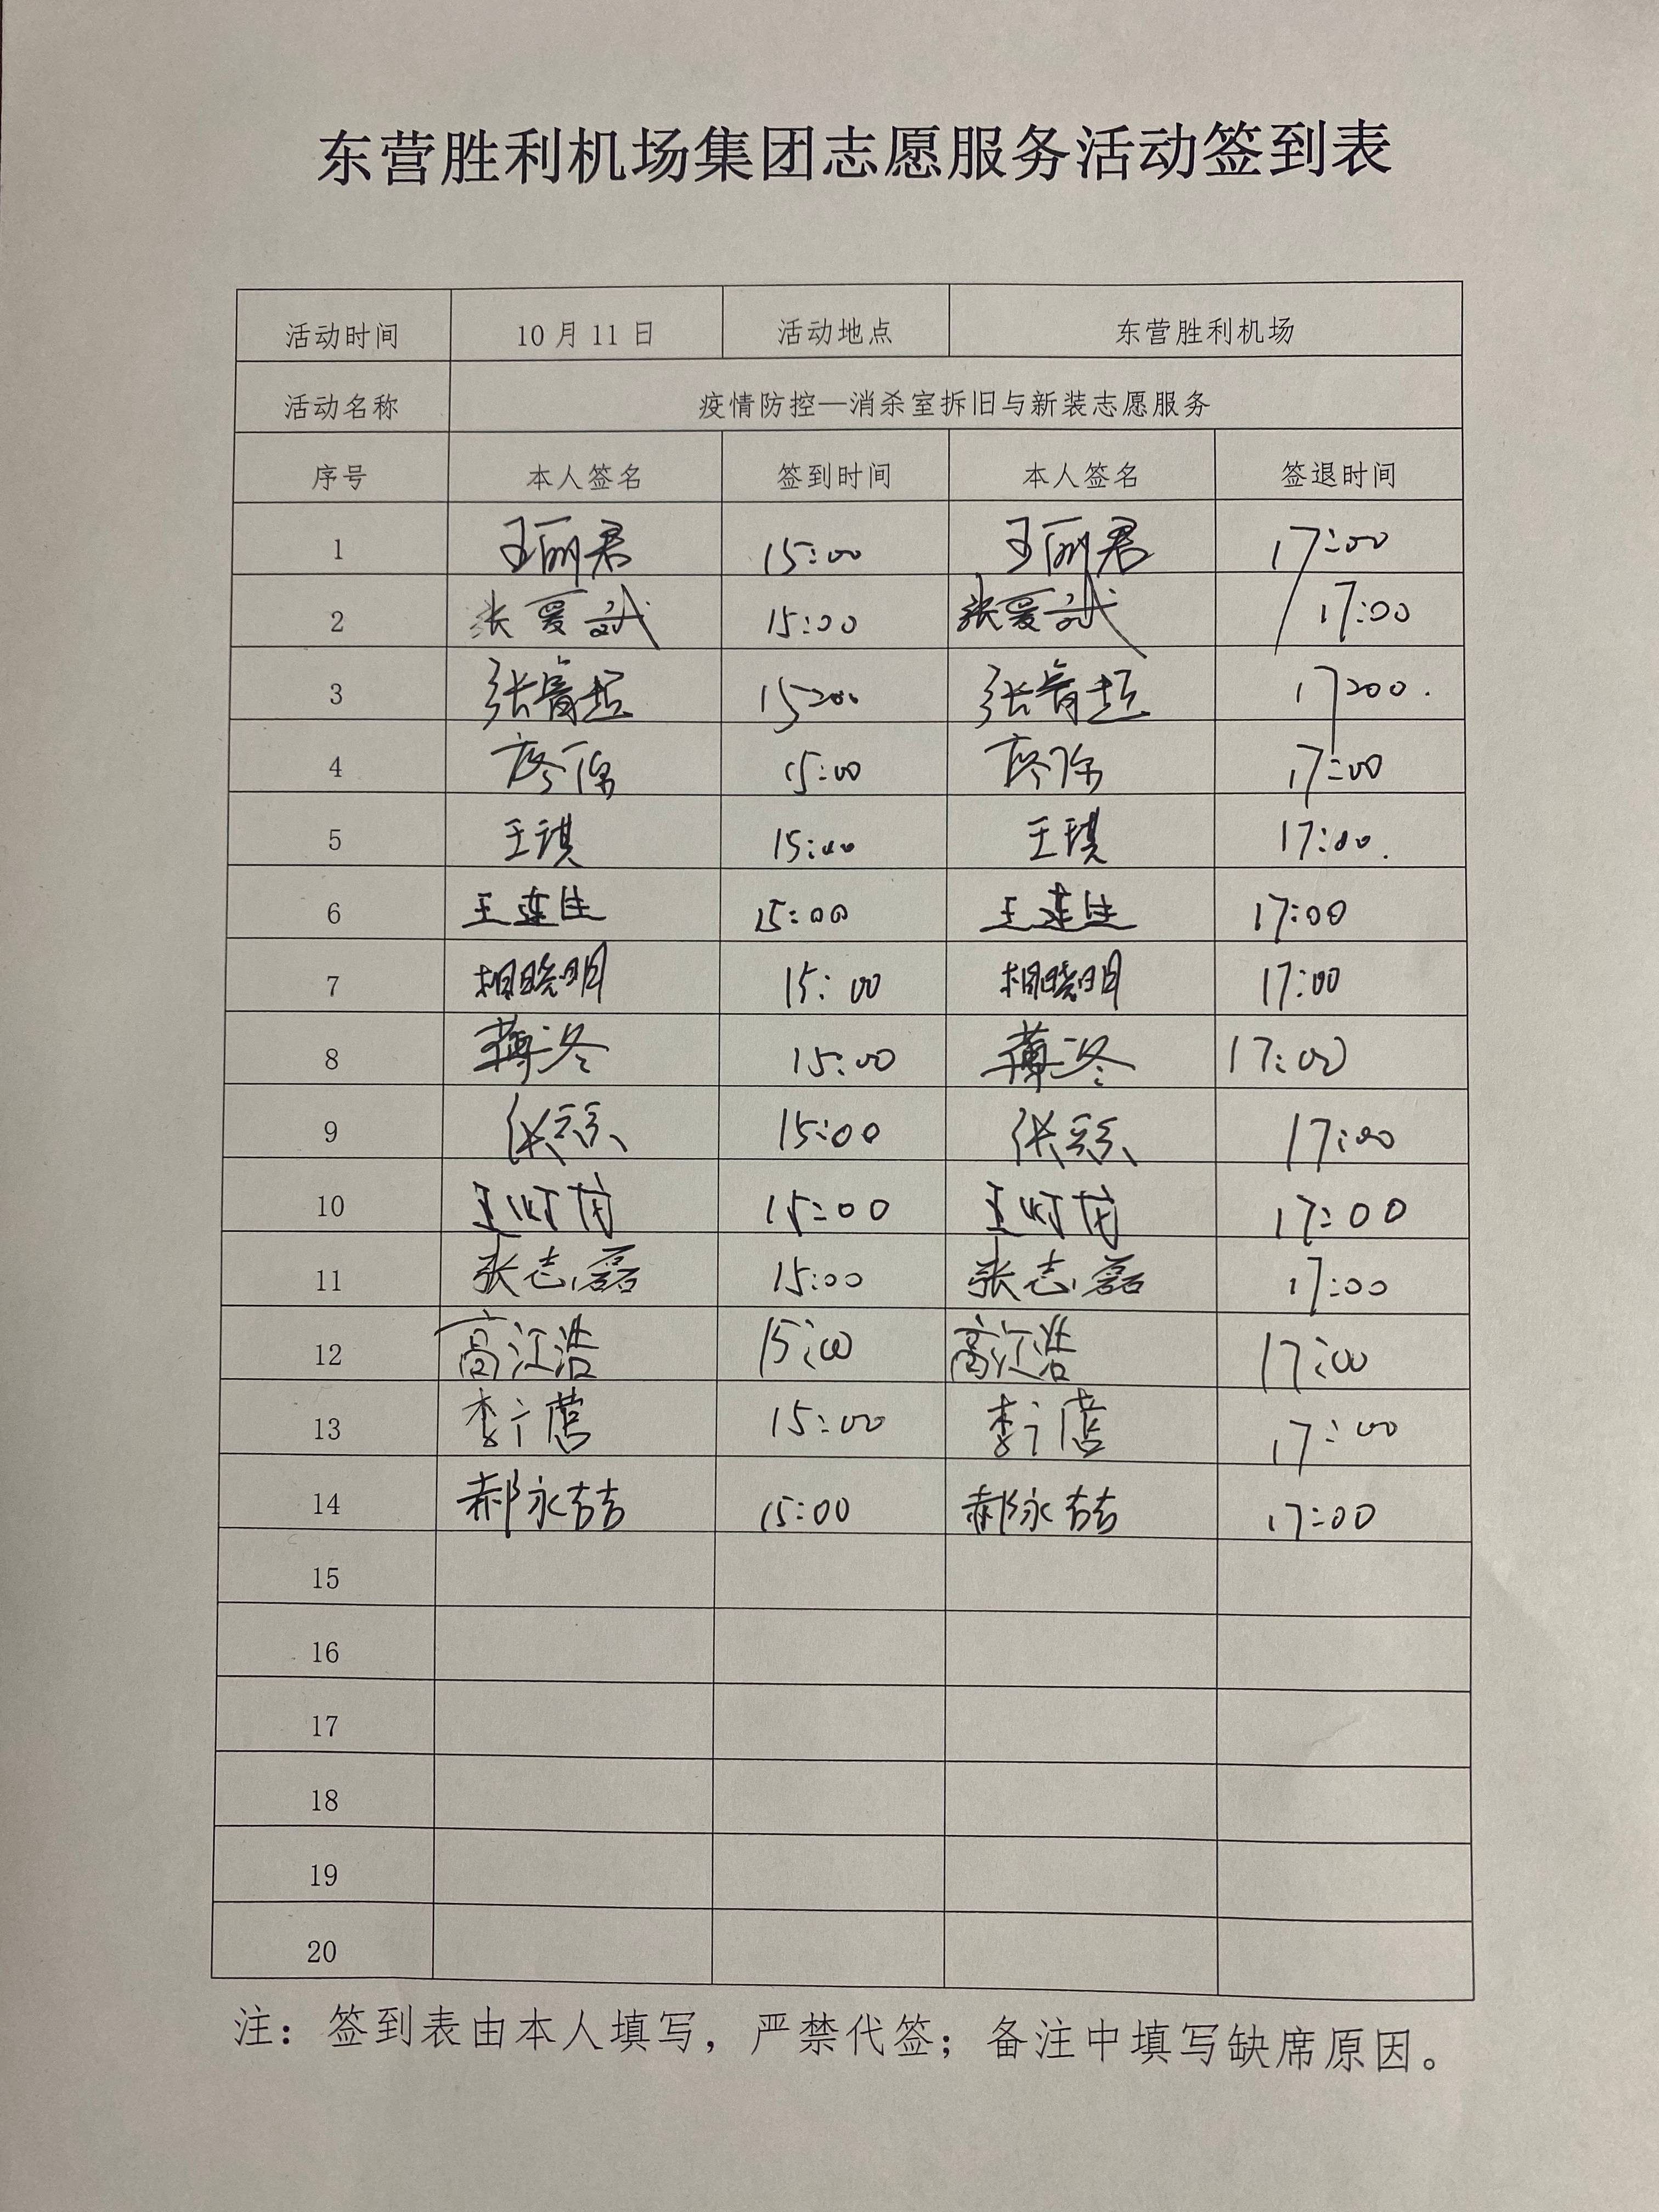 东营胜利机场集团志愿服务活动签到表
活动时间 10月11日 活动地点 东营胜利机场
活动名称 疫情防控—消杀室拆旧与新装志愿服务
序号 本人签名 签到时间 本人签名 签退时间
1 王丽君 15:00 王丽君 17:00
2 张爱武 15:00 张爱武 17:00
3 15:00 17:00.
4 15:00 17:00
5 王琪 15:00 王琪 17:00.
6 王连生 15:00 王连生 17:00
7 相晓明 15:00 相晓明 17:00
8 薄冬 15:00 薄冬 17:00
9 15:00 17:00
10 15:00 17:00
11 张志磊 15:00 张志磊 17:00
12 高江浩 15:00 高江浩 17:00
13 李广营 15:00 李广营 17:00
14 郝永喆 15:00 郝永喆 17:00
15
16
17
18
19
20
注：签到表由本人填写，严禁代签；备注中填写缺席原因。